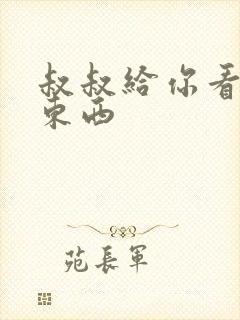 叔叔給你看
東西
苑長軍